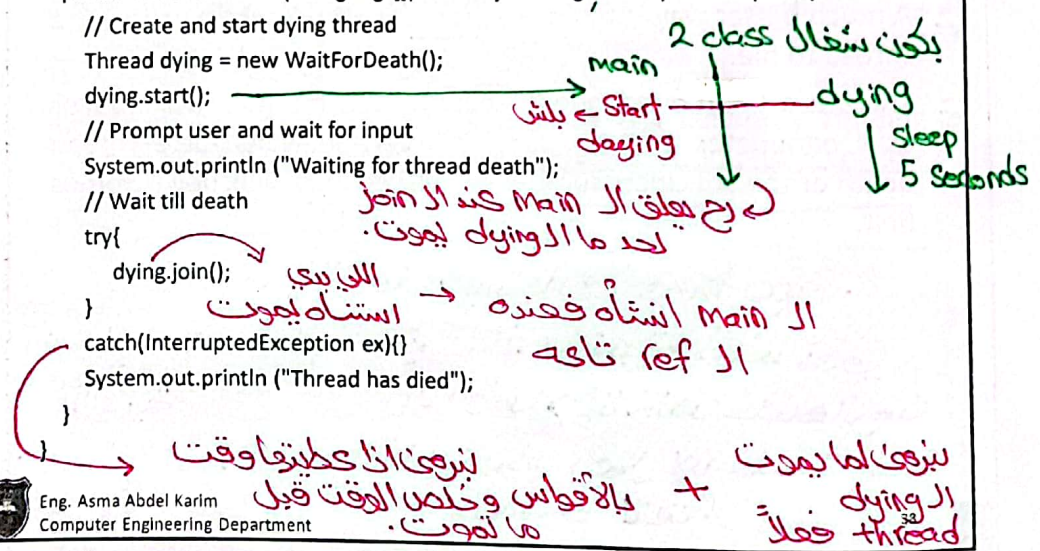 // Create and start dying thread
Thread dying = new WaitForDeath();
dying.start();
// Prompt user and wait for input
System.out.println ("Waiting for thread death");
// Wait till death
try{
dying.join();
}
catch(InterruptedException ex){}
System.out.println ("Thread has died");
}
}
بكون شغال 2 class
main
dying
Start ← بلش
daying
sleep
5 seconds
رح يعلق ال Main عند ال join
لحد ما ال dying يموت.
اللي بدي
استناه يموت
ال Main انشأه فعنده
ال ref تاعه
بنروح لما يموت
ال dying
thread فعلاً
+
بنروح اذا عطيتها وقت
بالأقواس وخلص الوقت قبل
ما تموت.
Eng. Asma Abdel Karim
Computer Engineering Department
33